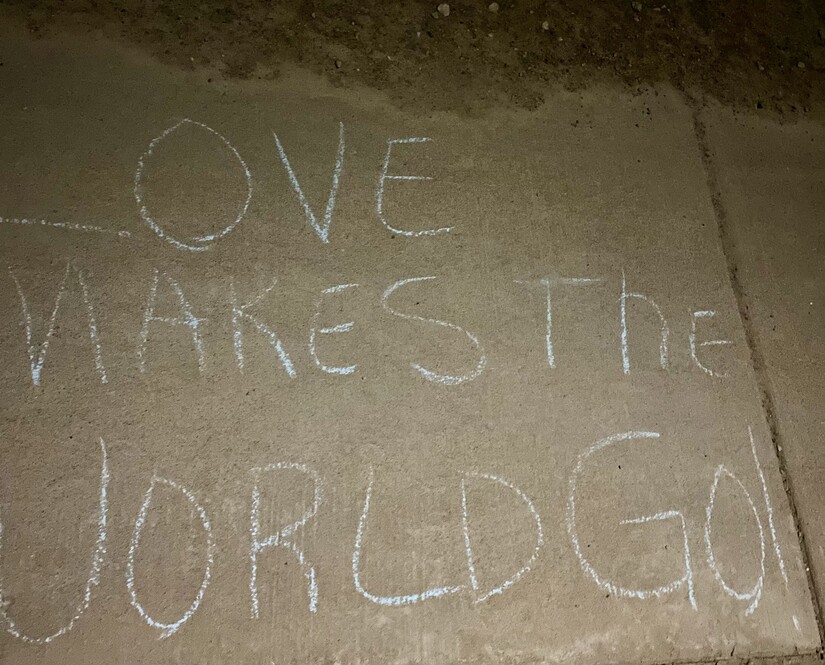 LOVE
MAKES The
WORLD GO!